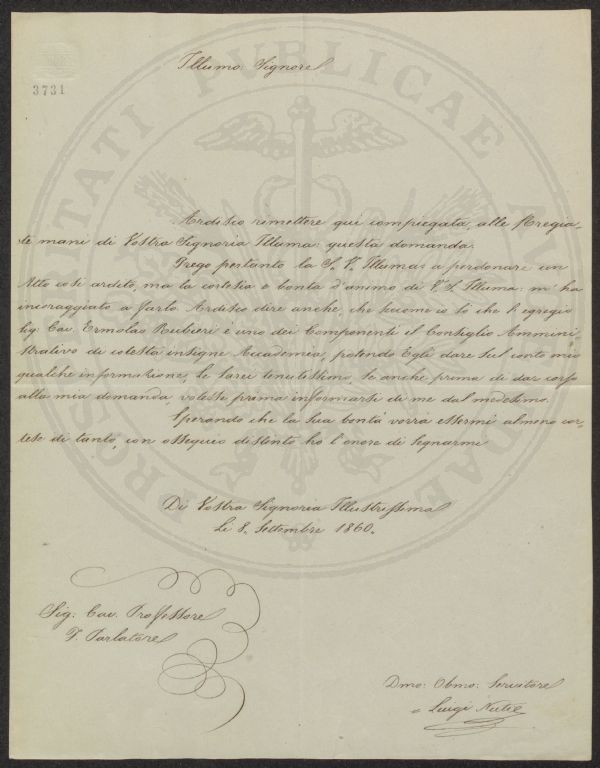 Illumo: Signore
3731
Ardisco rimettere quì compiegata, alle Pregia=
te mani di Vostra Signoria Illuma: questa domanda.
Prego pertanto la S. V. Illuma: a perdonare un
Atto così ardito, ma la cortesia e bontà d'animo di V. S. Illuma: m'ha
incoraggiato a farlo. Ardisco dire anche, che siccome io sò che l'egregio
Sig: Cav. Ermolao Rubieri è uno dei Componenti il Consiglio Ammini=
strativo di cotesta insigne Accademia, potendo Egli dare sul conto mio
qualche informazione, le sarei tenutissimo, se anche prima di dar corso
alla mia domanda, volesse prima informarsi di me dal medesimo.
Sperando che la Sua bontà vorrà essermi almeno cor=
tese di tanto, con ossequio distinto ho l'onore di segnarmi
Di Vostra Signoria Illustrissima
Li 8. Settembre 1860.
Sig: Cav. Professore
F. Parlatore
Dmo: Obmo: Servitore
Luigi
PROSPERITATI PUBLICAE AUGENDAE